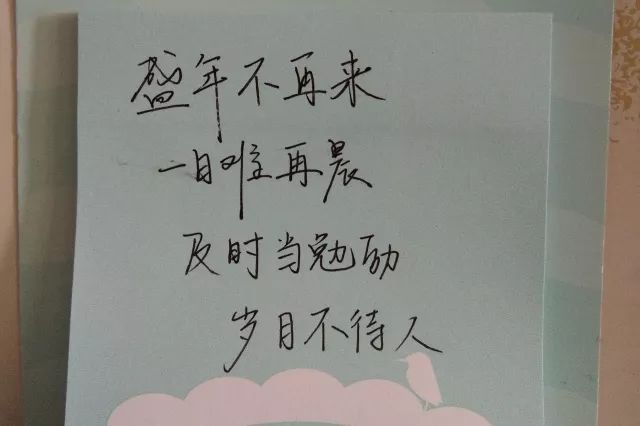 盛年不再来
一日难再晨
及时当勉励
岁月不待人